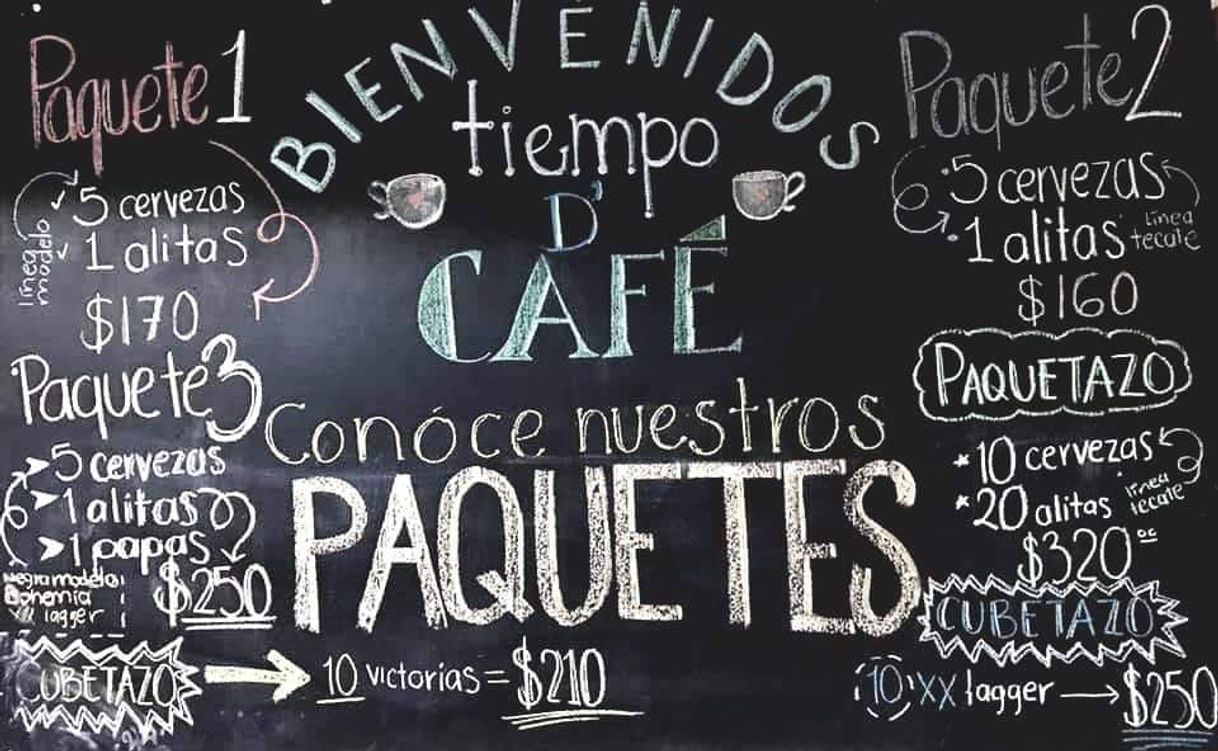 BIENVENIDOS
tiempo
D'
CAFÉ
Conóce nuestros
PAQUETES
Paquete 1
5 cervezas
1 alitas
línea modelo
$170
Paquete 2
5 cervezas
1 alitas
línea tecate
$160
Paquete 3
5 cervezas
1 alitas
1 papas
negra modelo
Bohemia
XX lagger
$250
PAQUETAZO
*10 cervezas
*20 alitas
línea tecate
$320 oc
CUBETAZO
10 victorias = $210
CUBETAZO
10 XX lagger → $250